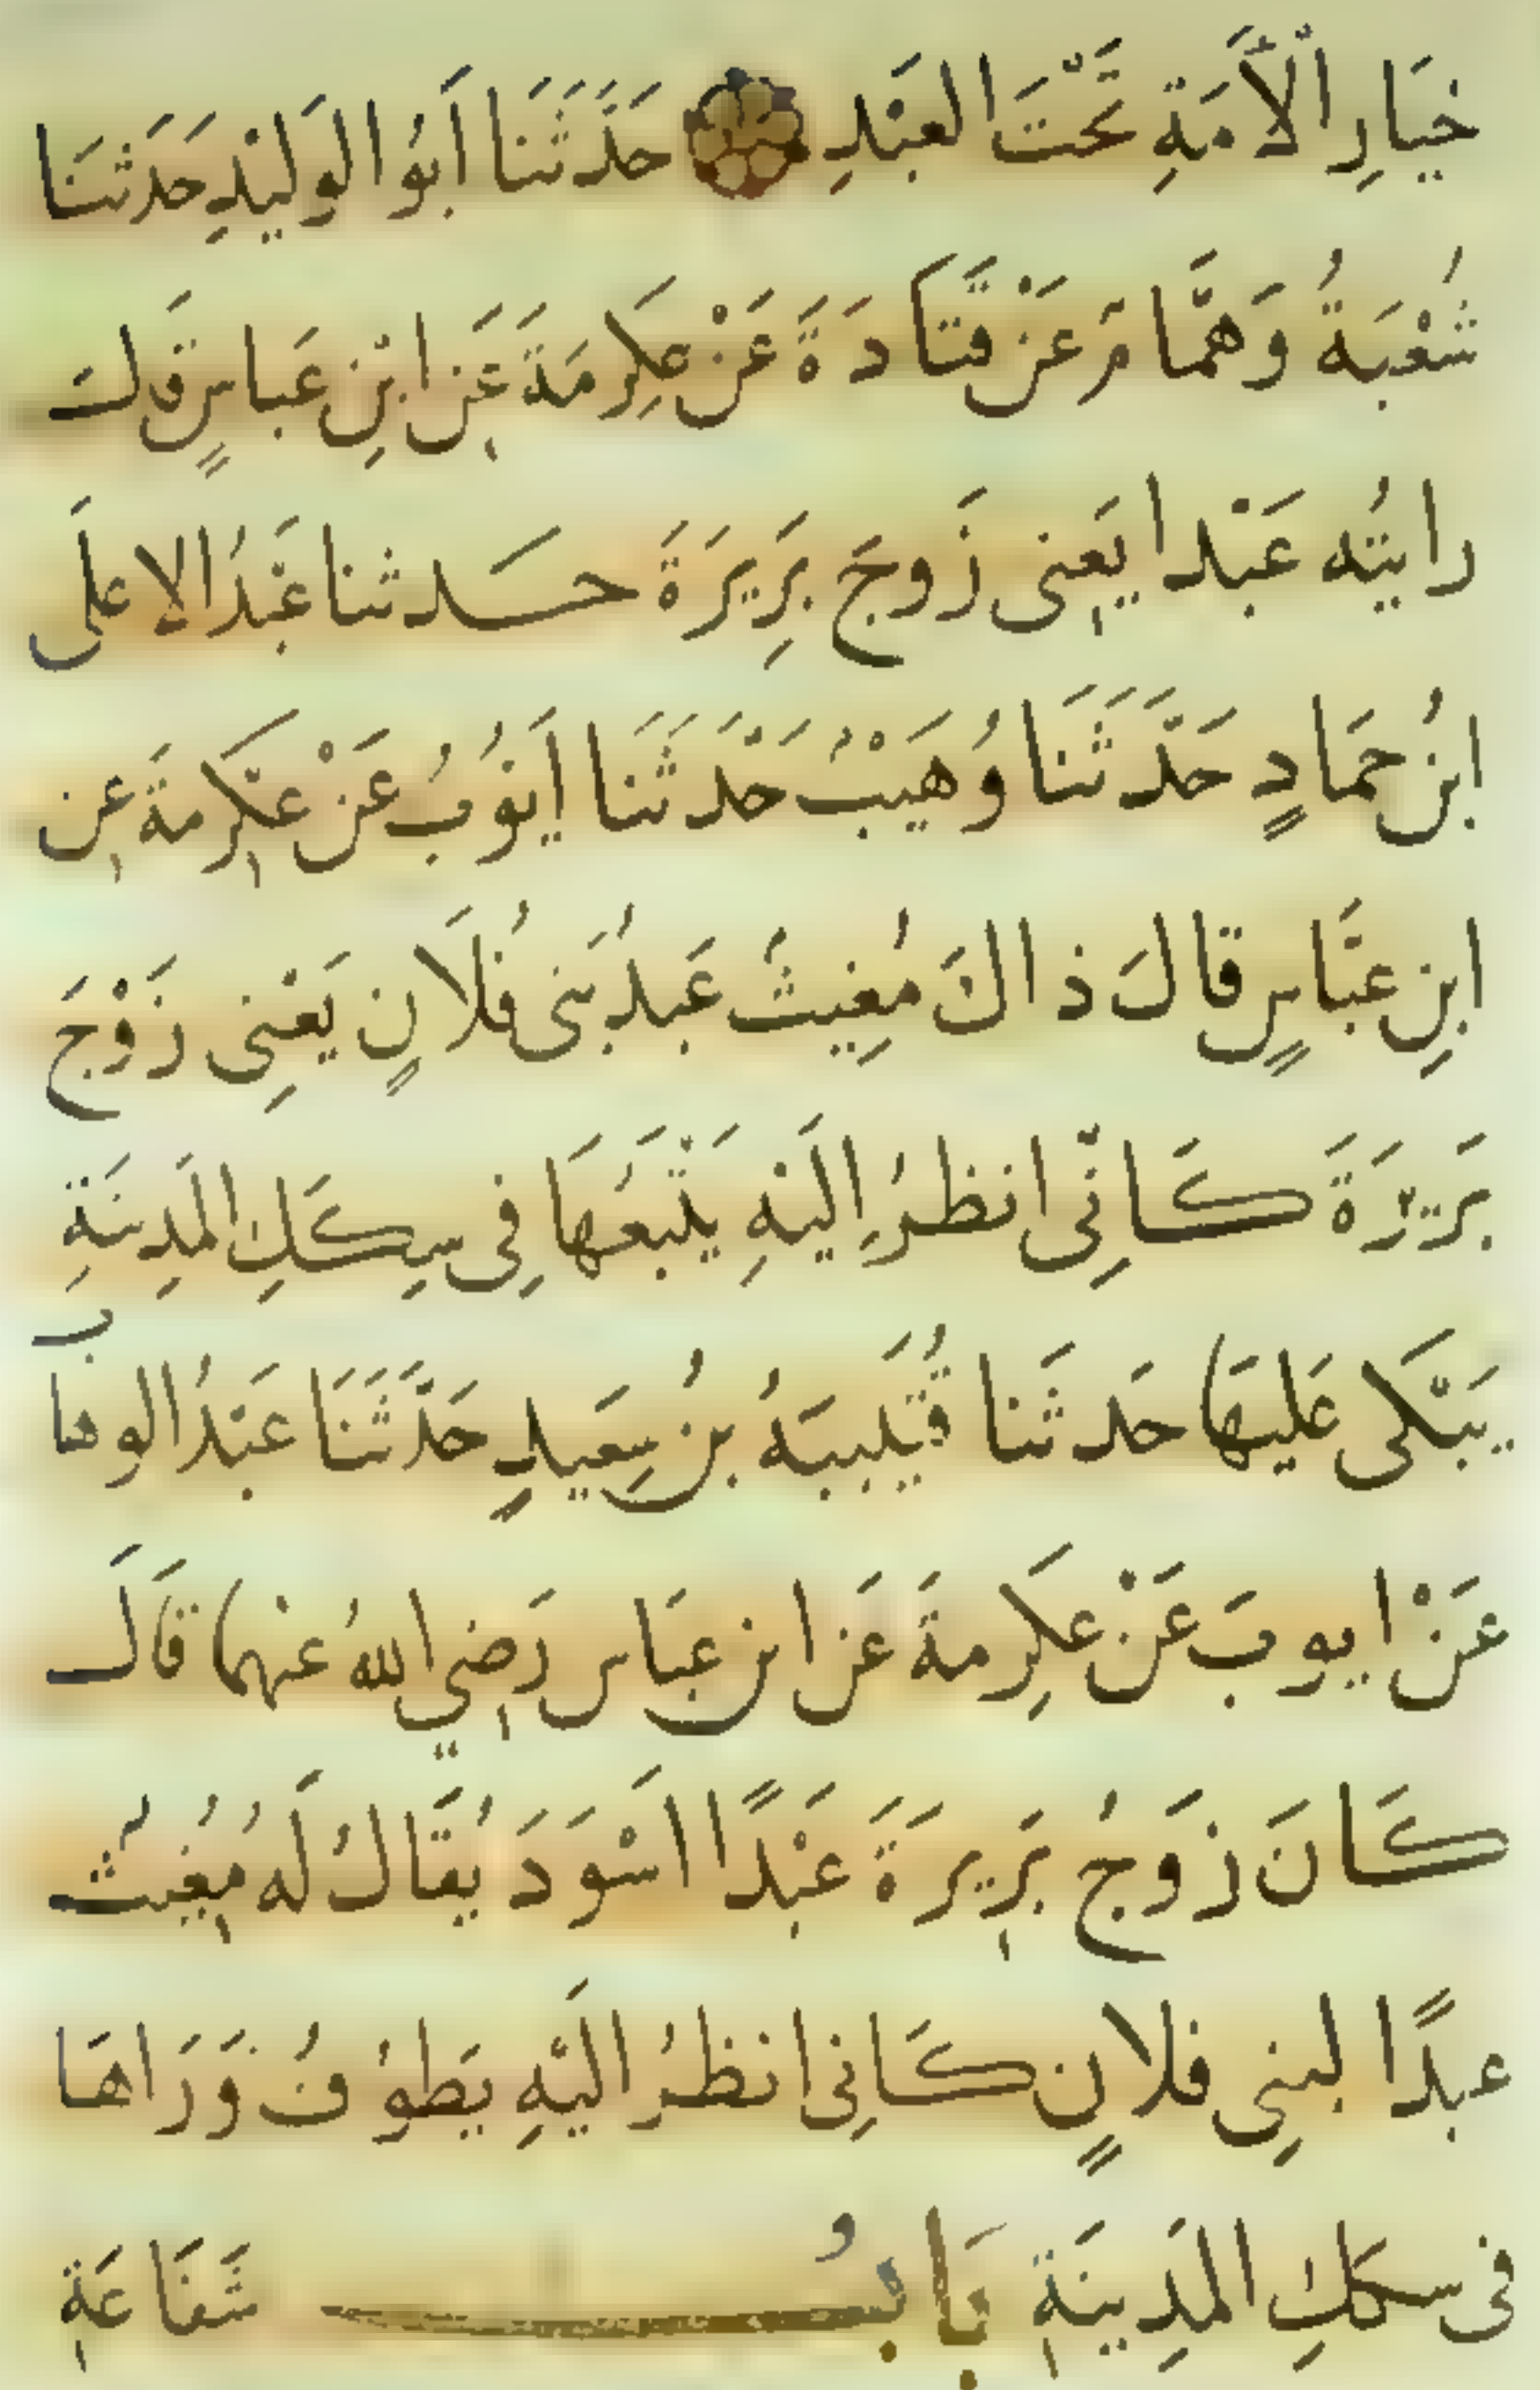 خِيَارِ الْأَمَةِ تَحْتَ العَبْدِ حَدَّثَنَا أَبُو الوَلِيْدِ حَدَثَنَا
شُعْبَةُ وَهَمَّامٌ عَنْ قَتَادَةَ عَنْ عِكرِمَةَ عَنِ ابْنِ عَباسٍ قَالَ
رايتُه عَبْدا يَعِنى زَوجَ بَرِيرَةَ حَدثنا عَبْدُ الاعلَى
ابنُ حَمادٍ حَدَّثَنَا وُهَيْبٌ حَدَّثَنَا أَيُّوبُ عَنْ عِكْرِمةَ عِن
ابنِ عبَّاسٍ قالَ ذاكَ مُغِيثٌ عَبدُ بَنى فُلَانٍ يَعْنِى زَوْجَ
بَرِيرَةَ كَانِّى انظرُ اِلَيْهِ يَتْبَعُهَا فِى سِكَكِ المَدِينَةِ
يَبْكَى عَليهَا حَدثَنا قُتَيبَةُ بنُ سِعَيدٍ حَدَّثَنَا عَبْدُ الوهابِ
عَنْ ايوبَ عَنْ عكرِمةَ عَن ابن عبَاس رَضِي اللهُ عنْهمَا قَالَ
كَانَ زَوجُ بَرِيرَةَ عَبْدًا اَسْوَدَ يُقَالُ لَه مُغِيثٌ
عبدًا لبنِى فلانٍ كَانِى انظرُ اليْهِ يَطوُفُ وَرَاهَا
فى سكَكِ المَدِينَةِ بَابُ شَفَاعَةِ